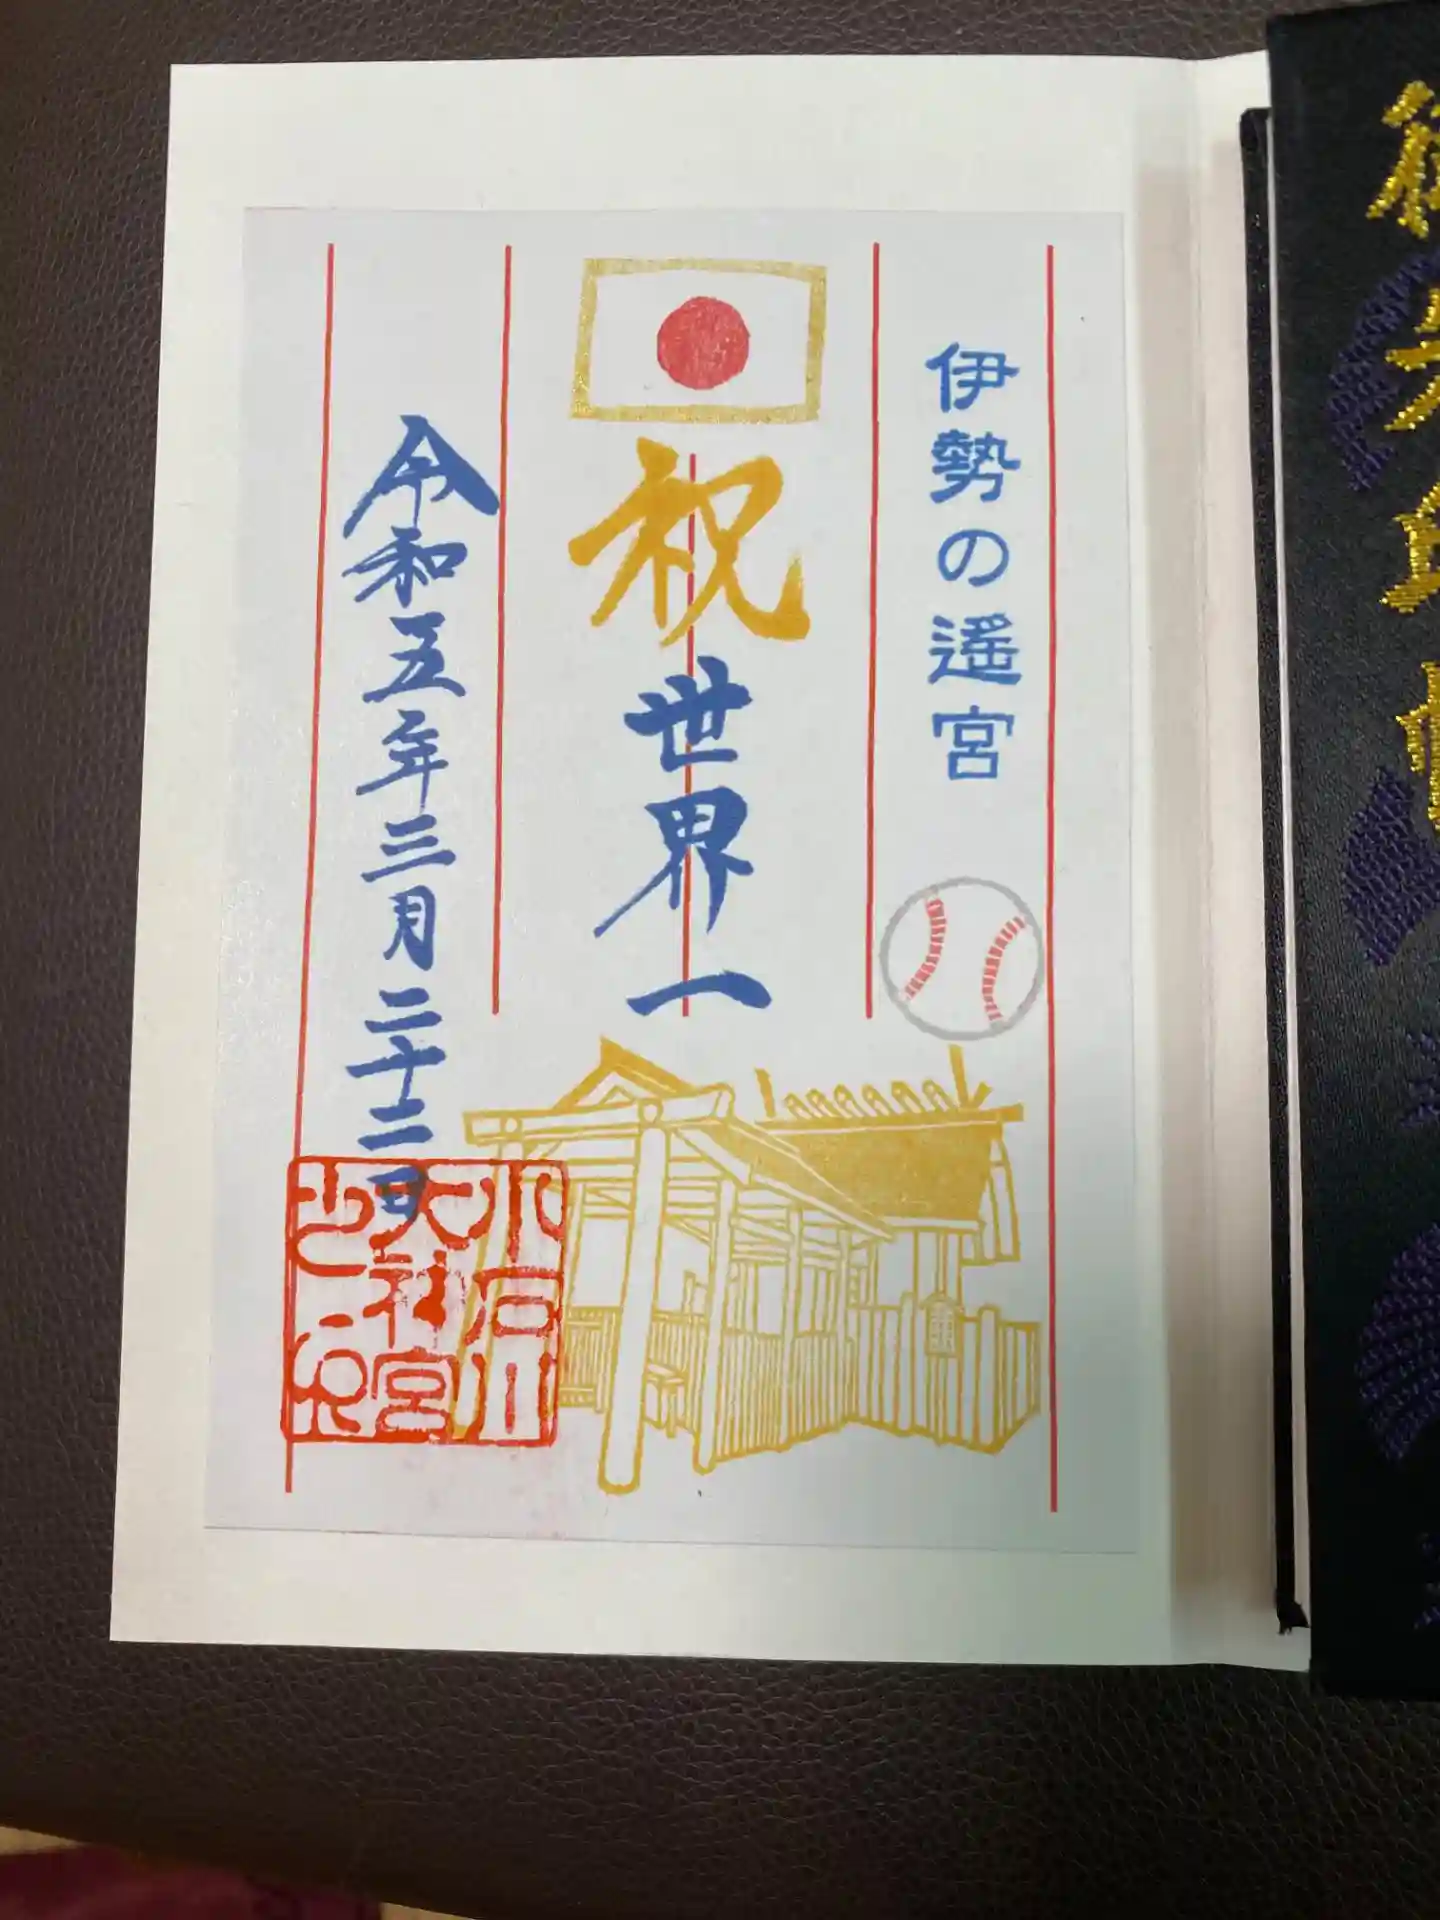 御朱印帳
伊勢の遥宮
祝世界一
令和五年三月二十二日
小石川
大神宮
之印